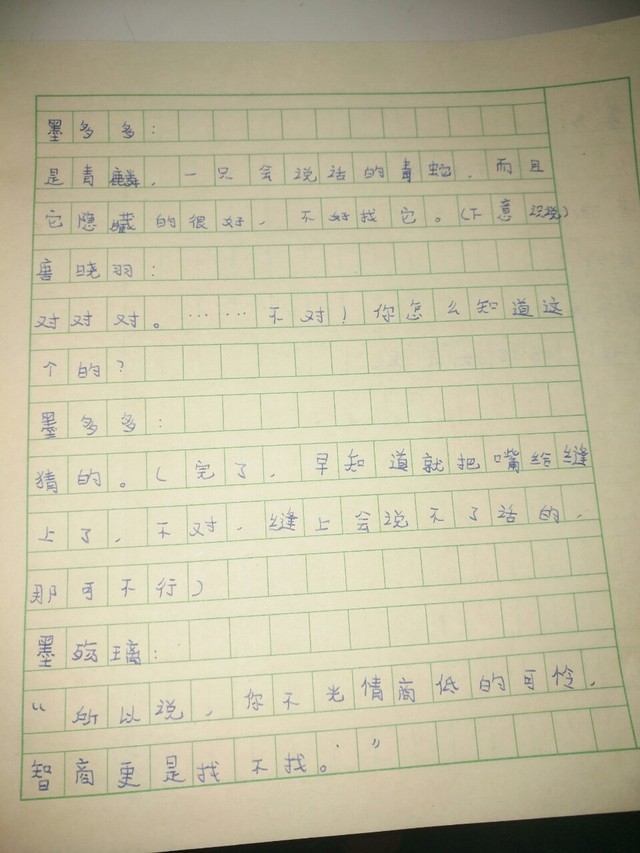 墨多多：
是青麟，一只会说话的青蛇，而且
它隐藏的很好，不好找它。（下意识说）
唐晓羽：
对对对。……不对！你怎么知道这
个的？
墨多多：
猜的。（完了，早知道就把嘴给缝
上了，不对，缝上会说不了话的，
那可不行）
墨殇璃：
“所以说，你不光情商低的可怜，
智商更是找不找。”